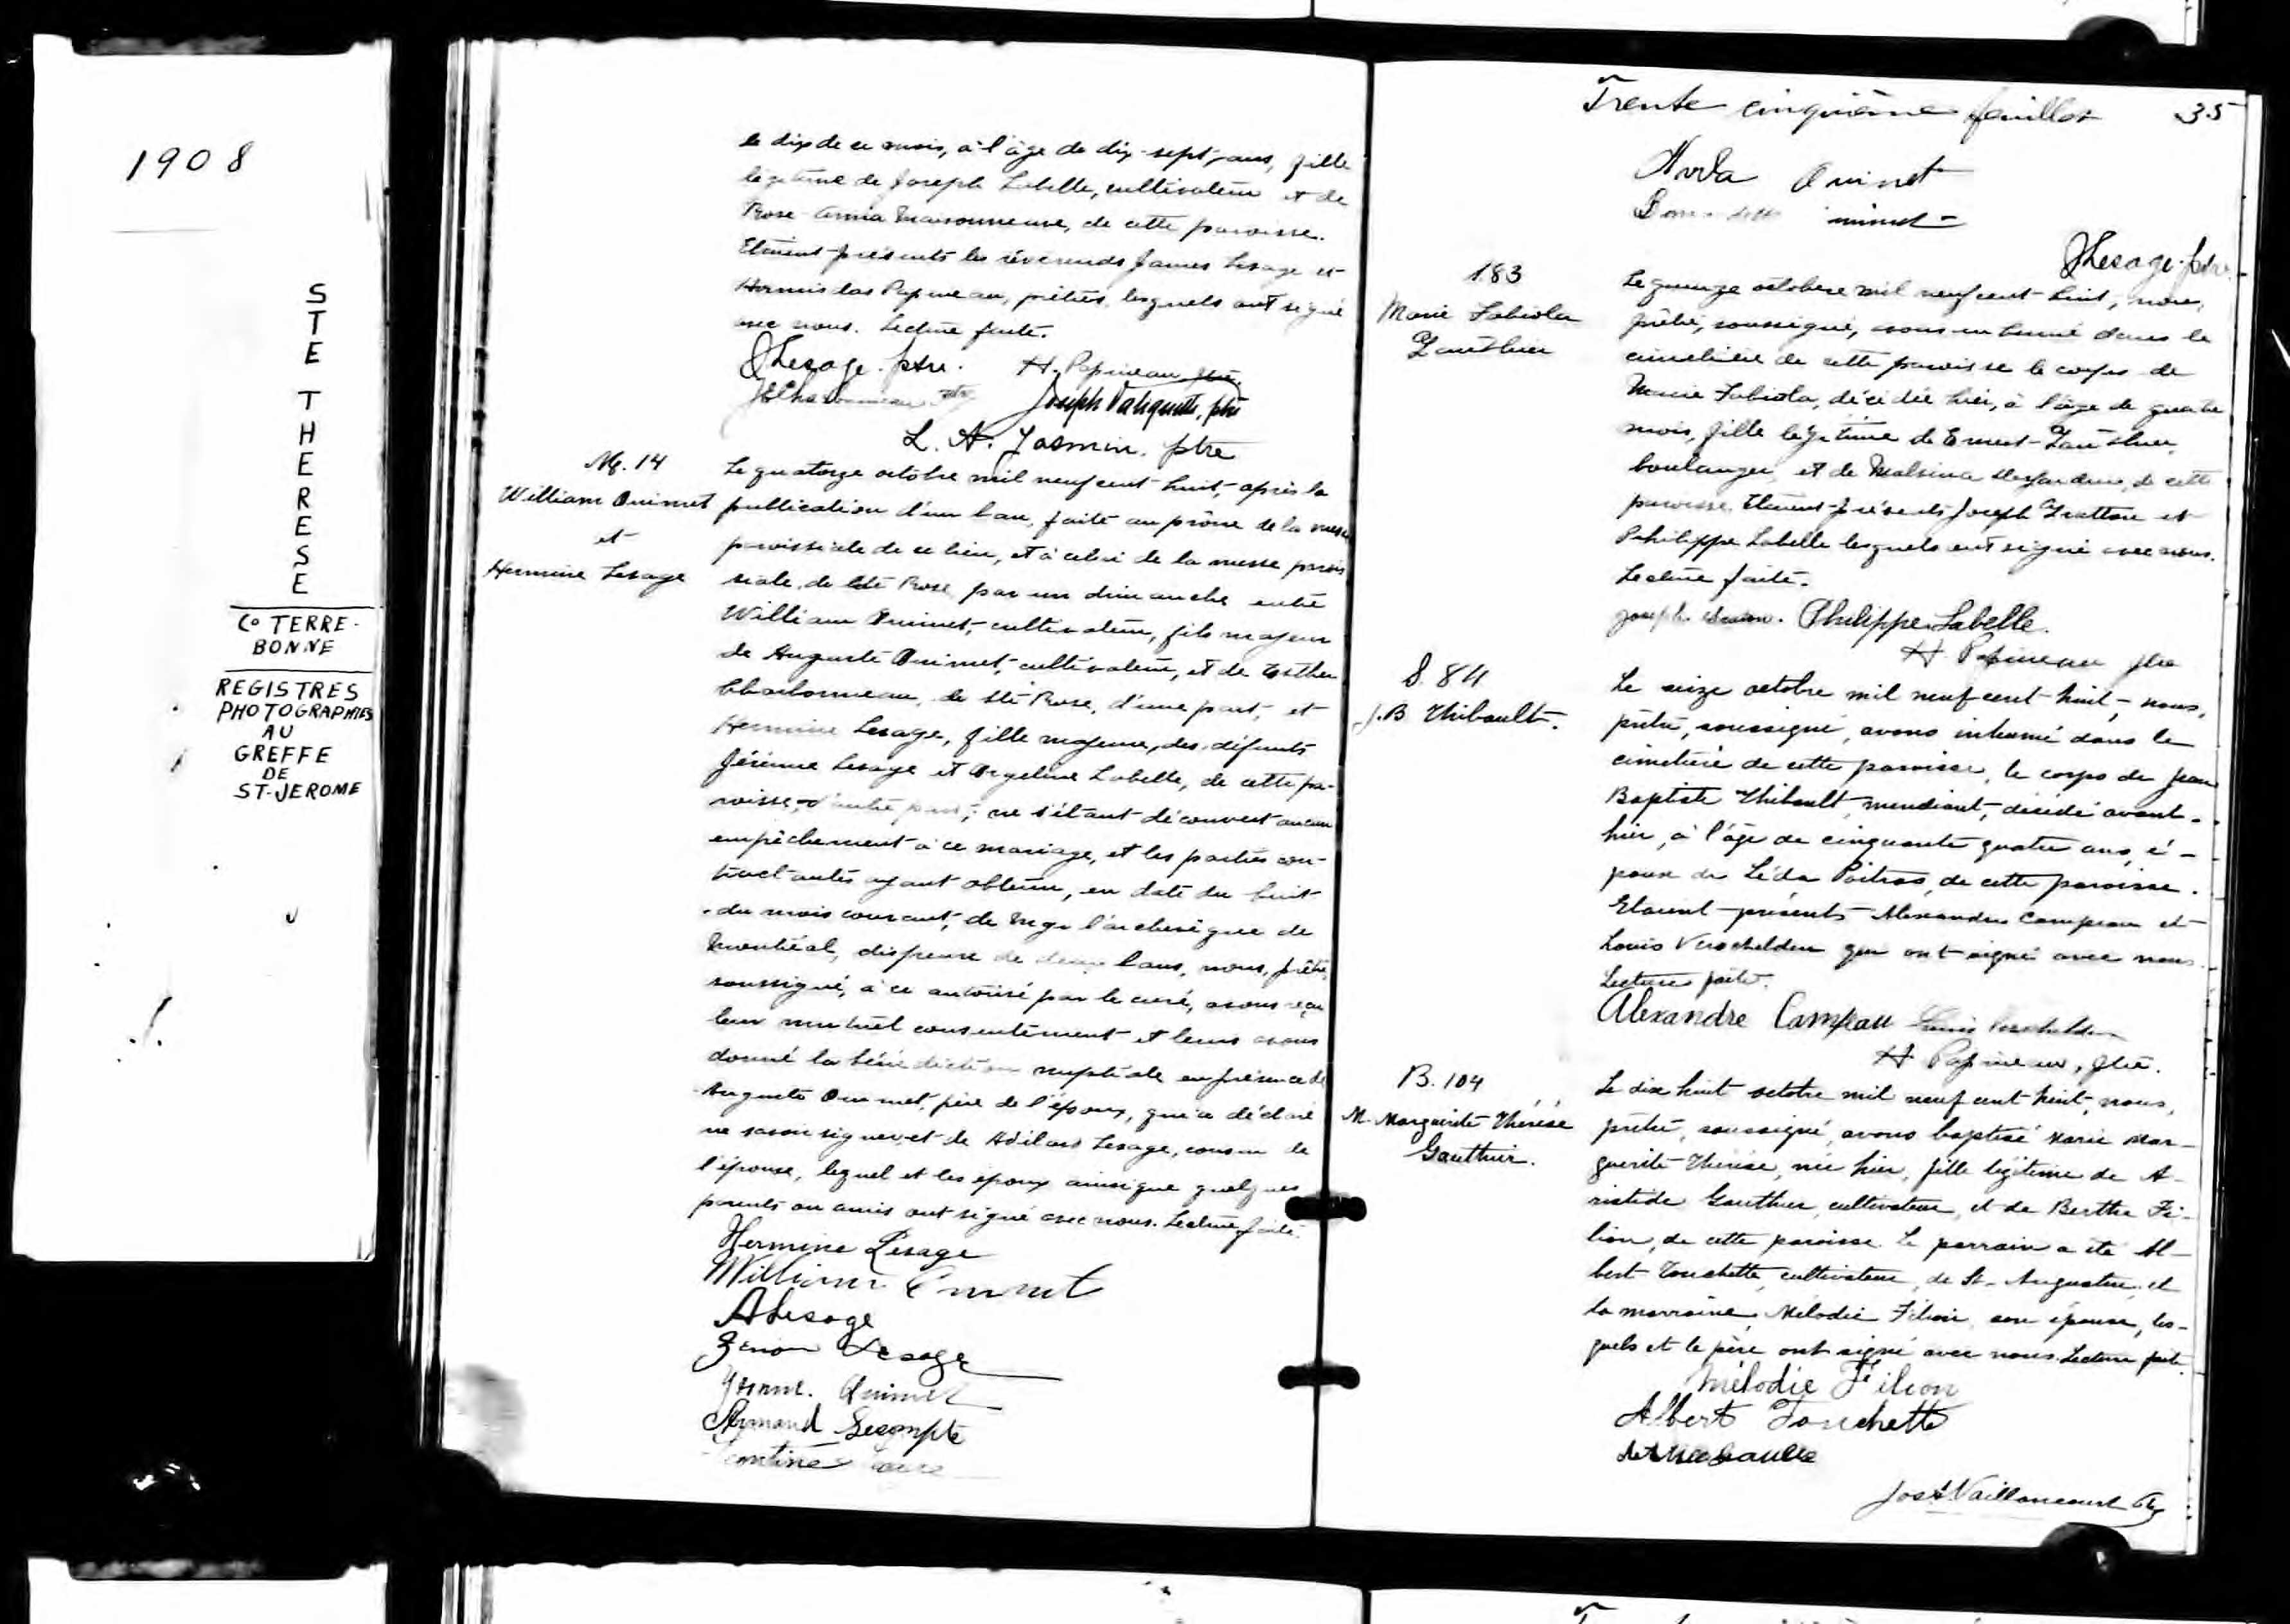 1908
STE THERESE
Co TERRE-
BONNE
REGISTRES
PHOTOGRAPHIES
AU
GREFFE
DE
ST-JEROME
le dix de ce mois, à l'âge de dix-sept ans, fille
légitime de Joseph Labelle, cultivateur et de
Rose-Anna Maisonneuve, de cette paroisse.
Etaient présents les révérends James Lesage et
Hormisdas Papineau, prêtres, lesquels ont signé
avec nous. Lecture faite.
JLesage. ptre. H. Papineau ptre.
Joseph Valiquette, ptre
L. A. Jasmin. ptre
M. 14
William Ouimet
et
Hermine Lesage
Le quatorze octobre mil neuf cent huit, après la
publication d'un ban, faite au prône de la messe
paroissiale de ce lieu, et à celui de la messe parois
siale de Ste Rose, par un dimanche entre
William Ouimet, cultivateur, fils majeur
de Auguste Ouimet, cultivateur, et de Esther
Charbonneau, de Ste Rose, d'une part, et
Hermine Lesage, fille majeure, des défunts
Jérémie Lesage et Orgeline Labelle, de cette pa-
roisse, d'autre part; ne s'étant découvert aucun
empêchement à ce mariage, et les parties con-
tractantes ayant obtenu, en date du huit
du mois courant, de Mgr l'archevêque de
Montréal, dispense de deux bans, nous, prêtre,
soussigné, à ce autorisé par le curé, avons reçu
leur mutuel consentement et leurs avons
donné la bénédiction nuptiale en présence de
Auguste Ouimet, père de l'époux, qui a déclaré
ne savoir signer et de Adélard Lesage, cousin de
l'épouse, lequel et les époux ainsi que quelques
parents ou amis ont signé avec nous. Lecture faite.
Hermine Lesage
William Ouimet
ALesage
Zenon Lesage
Yvonne. Ouimet
Armand Lecompte
Trente cinquième feuillet 35
Ouimet
JLesage. ptre.
183
Marie Fabiola
Gauthier
Le quinze octobre mil neuf cent huit, nous,
prêtre, soussigné, avons inhumé dans le
cimetière de cette paroisse le corps de
Marie Fabiola, décédée hier, à l'âge de quatre
mois, fille légitime de Ernest Gauthier,
boulanger, et de Malvina Desjardins, de cette
paroisse. Etaient présents Joseph Gratton et
Philippe Labelle lesquels ont signé avec nous.
Lecture faite.
Joseph Philippe Labelle.
H. Papineau ptre
S. 84
J.B Thibault.
Le seize octobre mil neuf cent huit, nous,
prêtre, soussigné, avons inhumé dans le
cimetière de cette paroisse, le corps de Jean
Baptiste Thibault, mendiant, décédé avant-
hier, à l'âge de cinquante quatre ans, é-
poux de Léda Poitras, de cette paroisse.
Etaient présents Alexandre Campeau et
Louis Verschelden qui ont signé avec nous.
Lecture faite.
Alexandre Campeau Louis Verschelden
H. Papineau, ptre.
B. 104
M. Marguerite Thérèse
Gauthier.
Le dix huit octobre mil neuf cent huit, nous,
prêtre, soussigné, avons baptisé Marie Mar-
guerite Thérèse, née hier, fille légitime de A-
ristide Gauthier, cultivateur, et de Berthe Fi-
lion, de cette paroisse. Le parrain a été Al-
bert Touchette, cultivateur, de St-Augustin, et
la marraine, Mélodie Filion, son épouse, les-
quels et le père ont signé avec nous. Lecture faite.
Mélodie Filion
Albert Touchette
Jos A Vaillancourt